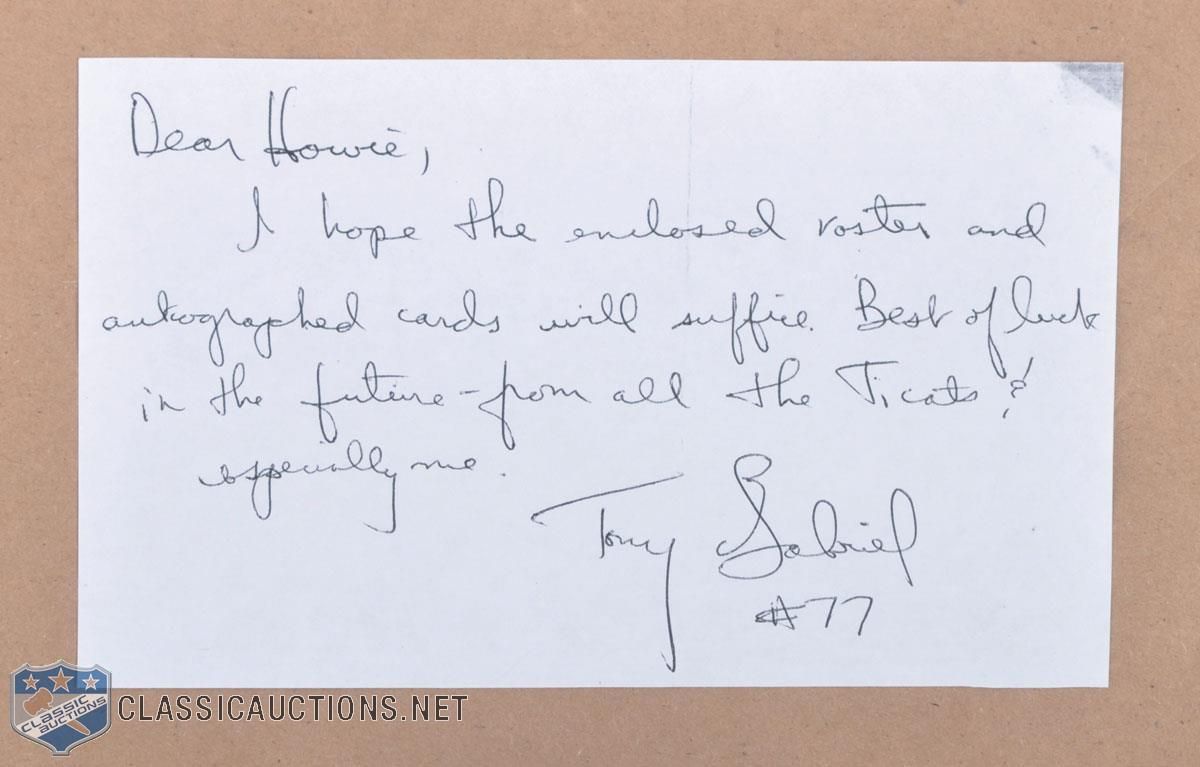 Dear Howie,
I hope the enclosed roster and
autographed cards will suffice. Best of luck
in the future - from all the Ticats &
especially me.
Tony Gabriel
#77
CLASSIC
AUCTIONS
CLASSICAUCTIONS.NET